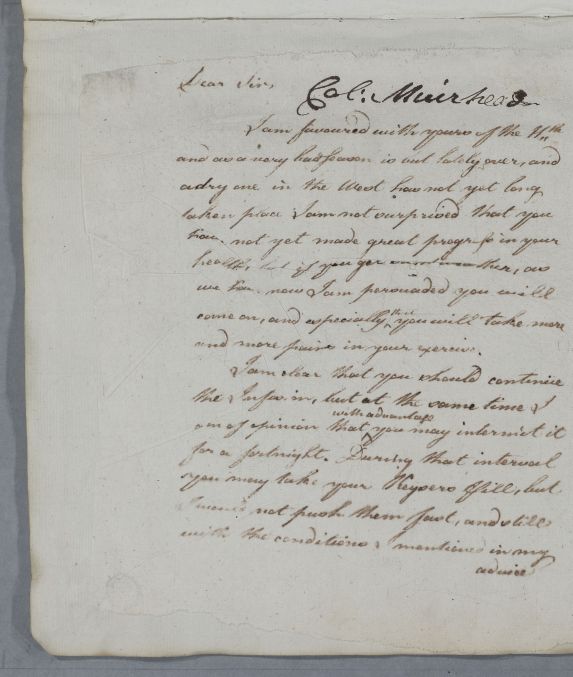 Dear Sir,
Col: Muirhead
I am favoured with yours of the
and as a very bad season is but lately over, and
a dry one in the West has not yet long
taken place I am not surprised that you
have not yet made great progress in your
health, but if you get weather, as
we have now I am persuaded you will
come on, and especially that you will take more
and more pains in your exercise.
I am clear that you should continue
the Infusion, but at the same time I
with advantage
am of opinion that you may intermit it
for a fortnight. During that interval
you may take your Keysers Pill, but
I would not push them fast, and still
with the conditions I mentioned in my
advice